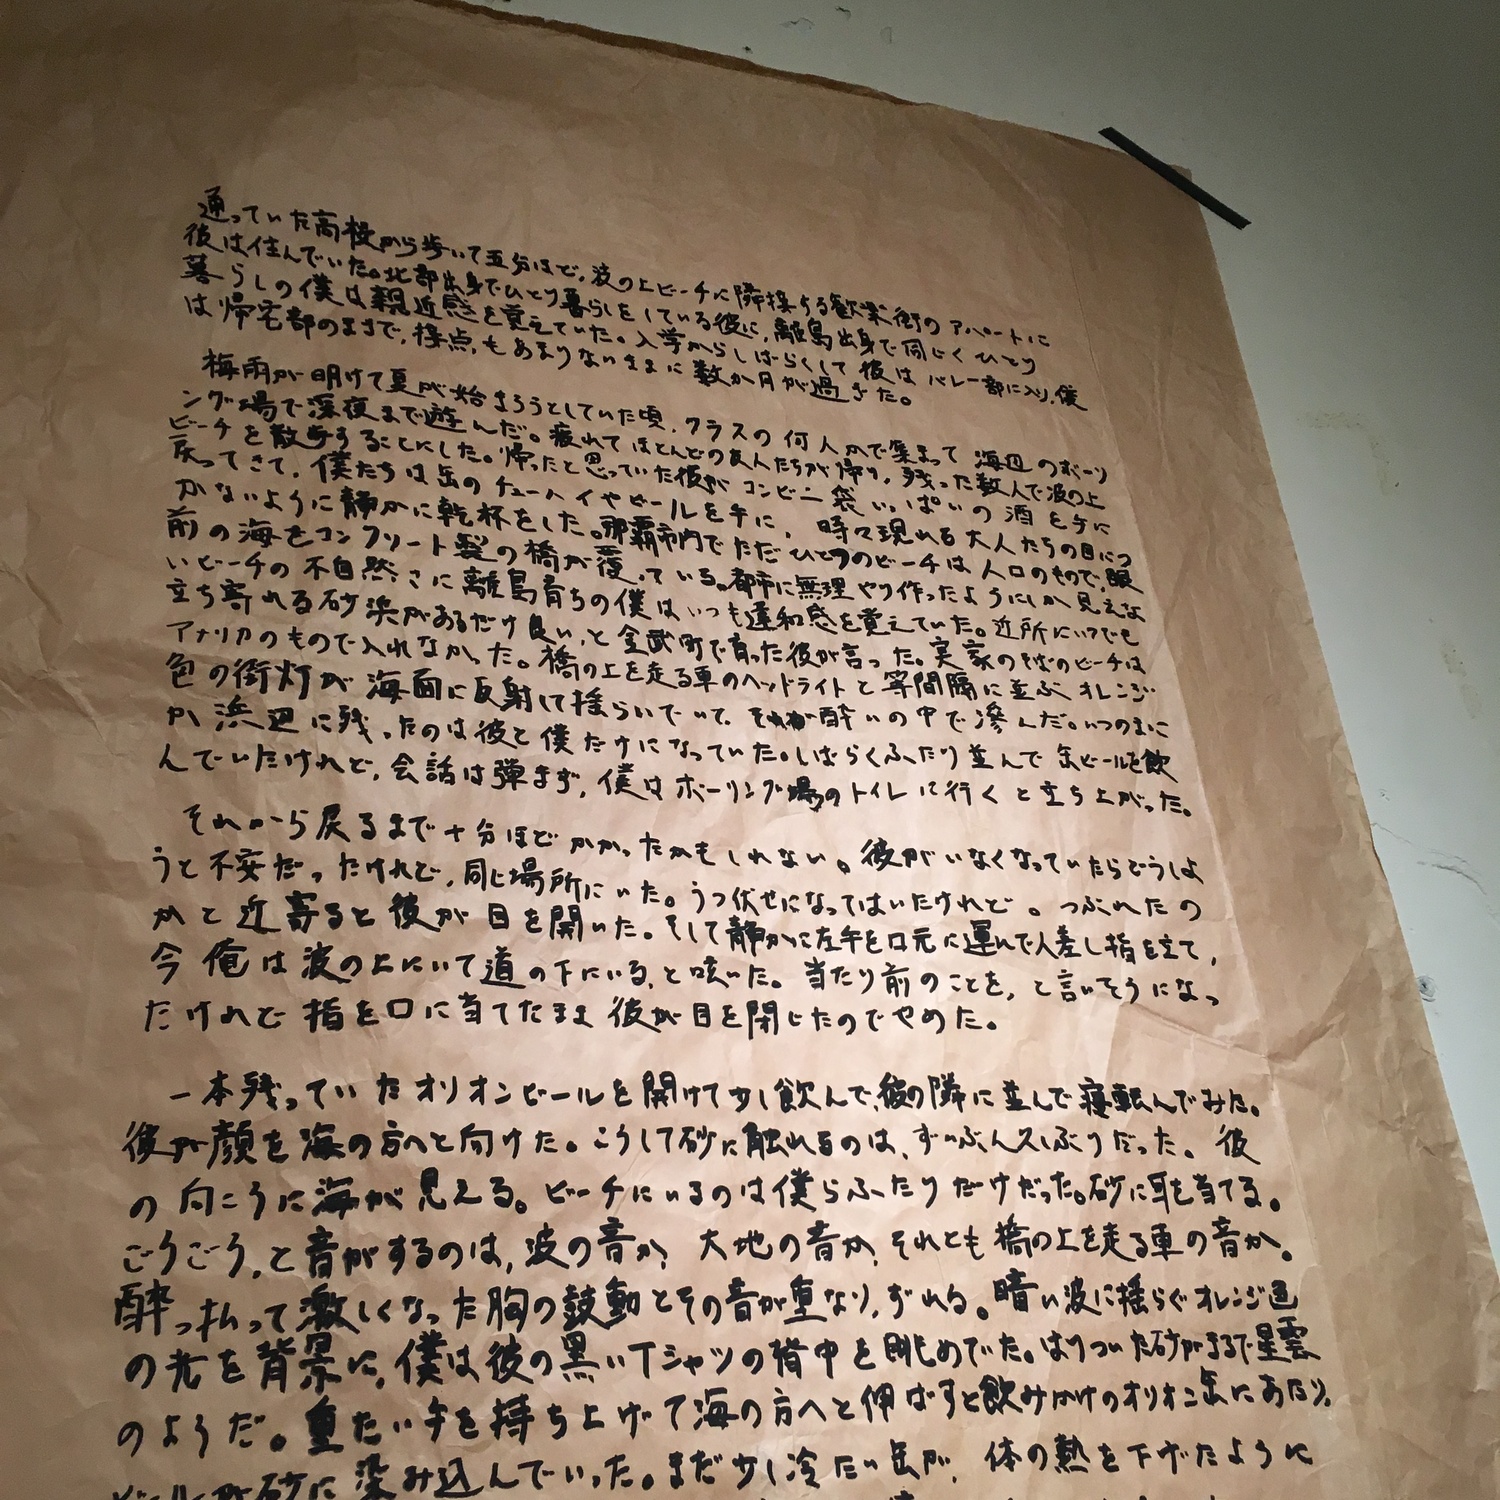 通っていた高校から歩いて五分ほど、波の上ビーチに隣接する歓楽街のアパートに
彼は住んでいた。北部出身でひとり暮らしをしている彼に、離島出身で同じくひとり
暮らしの僕は親近感を覚えていた。入学からしばらくして彼はバレー部に入り、僕
は帰宅部のままで、接点もあまりないままに数か月が過ぎた。
梅雨が明けて夏が始まろうとしていた頃、クラスの何人かで集まって海辺のボーリ
ング場で深夜まで遊んだ。疲れてほとんどの友人たちが帰り、残った数人で波の上
ビーチを散歩することにした。帰ったと思っていた彼がコンビニ袋いっぱいの酒を手に
戻ってきて、僕たちは缶のチューハイやビールを手に、時々現れる大人たちの目につ
かないように静かに乾杯をした。那覇市内でただひとつのビーチは人口のもので、眼
前の海をコンクリート製の橋が覆っている。都市に無理やり作ったようにしか見えな
いビーチの不自然さに離島育ちの僕はいつも違和感を覚えていた。近所にいつでも
立ち寄れる砂浜があるだけ良い、と金武町で育った彼が言った。実家のそばのビーチは
アメリカのもので入れなかった。橋の上を走る車のヘッドライトと等間隔に並ぶオレンジ
色の街灯が海面に反射して揺らいでいて、それが酔いの中で滲んだ。いつのまに
か浜辺に残ったのは彼と僕だけになっていた。しばらくふたり並んで缶ビールを飲
んでいたけれど、会話は弾まず、僕はボーリング場のトイレに行くと立ち上がった。
それから戻るまで十分ほどかかったかもしれない。彼がいなくなっていたらどうしよ
うと不安だったけれど、同じ場所にいた。うつ伏せになってはいたけれど。つぶれたの
かと近寄ると彼が目を開いた。そして静かに左手を口元に運んで人差し指を立て、
今俺は波の上にいて道の下にいる、と呟いた。当たり前のことを、と言いそうになっ
たけれど指を口に当てたまま彼が目を閉じたのでやめた。
一本残っていたオリオンビールを開けて少し飲んで、彼の隣に並んで寝転んでみた。
彼が顔を海の方へと向けた。こうして砂に触れるのは、ずいぶん久しぶりだった。彼
の向こうに海が見える。ビーチにいるのは僕らふたりだけだった。砂に耳を当てる。
ごうごう、と音がするのは、波の音か、大地の音か、それとも橋の上を走る車の音か。
酔っ払って激しくなった胸の鼓動とその音が重なり、ずれる。暗い波に揺らぐオレンジ色
の光を背景に、僕は彼の黒いTシャツの背中を眺めていた。はりついた砂がまるで星雲
のようだ。重たい手を持ち上げて海の方へと伸ばすと飲みかけのオリオン缶にあたり、
ビールが砂に染み込んでいった。まだ少し冷たい缶が、体の熱を下げたように